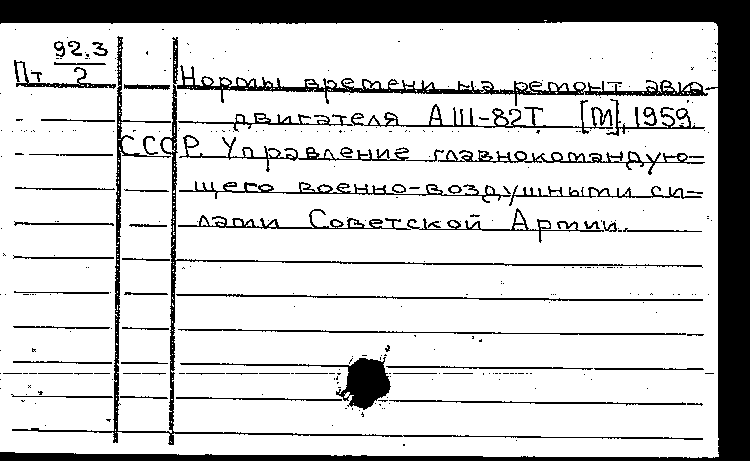 92,3
Пт 2
Нормы времени на ремонт авиа-
двигателя АШ-82Т. [М], 1959.
СССР. Управление главнокомандую=
щего военно-воздушными си=
лами Советской Армии.